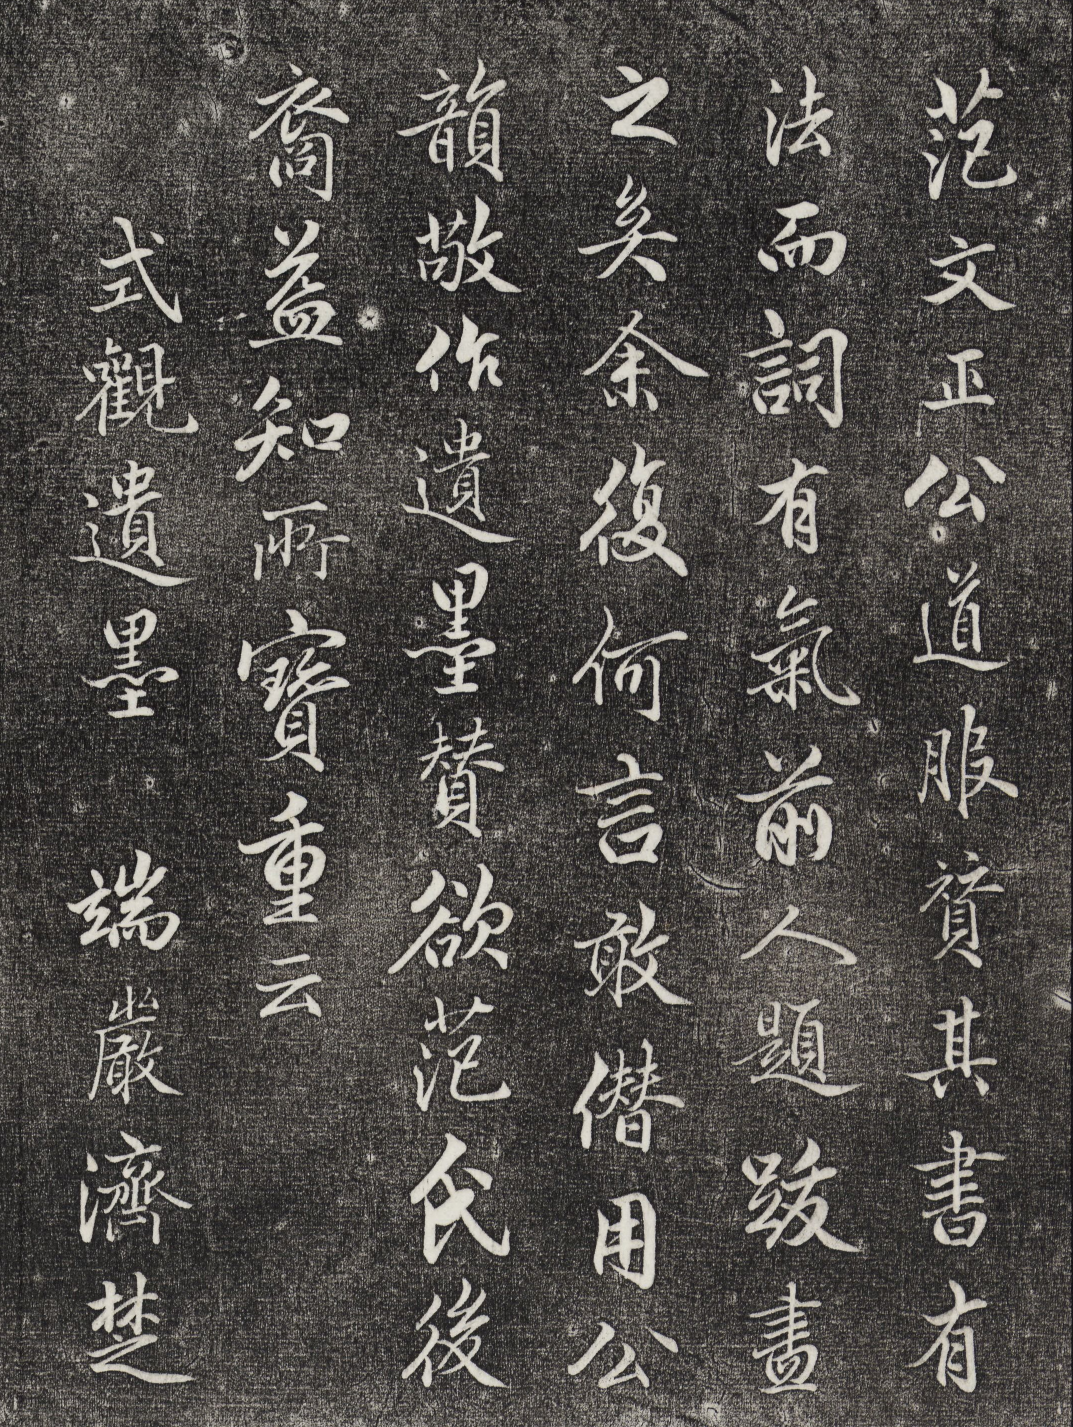 范文正公道服賛其書有
法而詞有氣前人題跋盡
之矣余復何言敢僭用公
韻敬作遺墨賛欲范氏後
裔益知所寶重云
式觀遺墨 端嚴濟楚